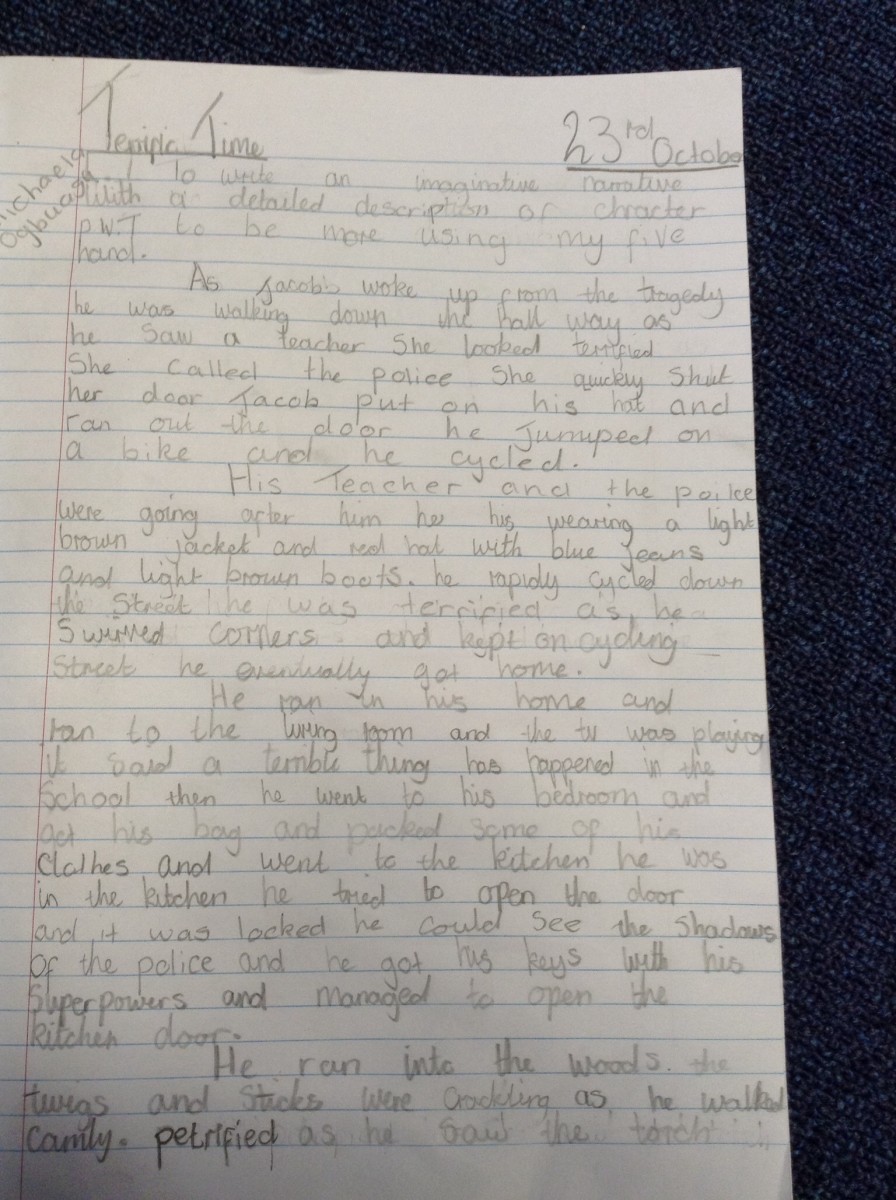 Terrific Time
23rd October
Michaela
Ogbuagu
To write an imaginative narrative
With a detailed description of chracter
P.W.T to be more using my five
hand.
As Jacobs woke up from the tragedy
he was walking down the hall way as
he Saw a teacher She looked terrified
She called the police She quickly Shut
her door Jacob put on his hat and
ran out the door he Jumped on
a bike and he cycled.
His Teacher and the poilce
were going after him he his wearing a light
brown jacket and red hat with blue jeans
and light brown boots. he rapidly cycled down
the Street he was terrified as he
Swirred corners. and kept on cycling
Street he eventually got home.
He ran in his home and
ran to the living room and the tv was playing
it Said a terrible thing has happened in the
School then he went to his bedroom and
got his bag and packed some of his
Clothes and went to the kitchen he was
in the kitchen he tried to open the door
and it was locked he could see the shadows
of the police and he got his keys with his
Superpowers and managed to open the
kitchen door.
He ran into the woods. the
twigs and Sticks were Crackling as he walked
Camly. petrified as he Saw the torch